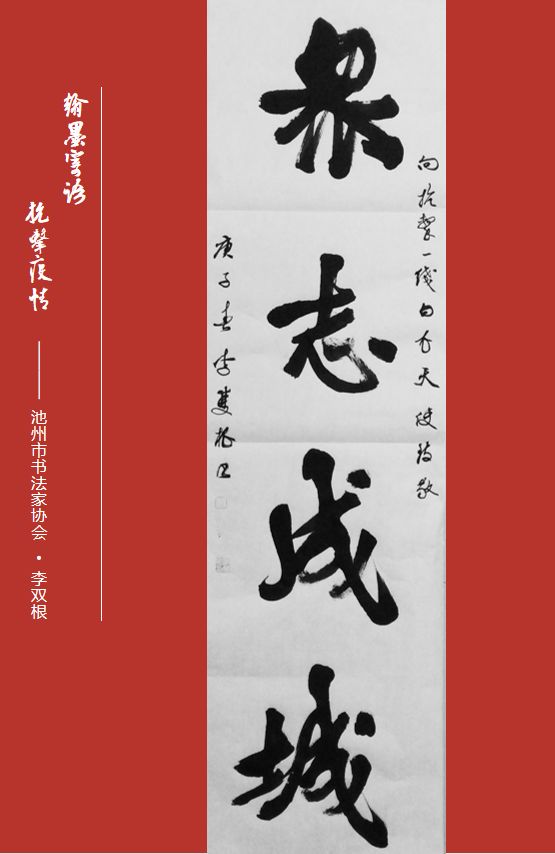 向抗擊一綫白衣天使致敬
眾志成城
庚子春李雙根书
翰墨寄语
抗擊疫情——池州市书法家协会·李双根